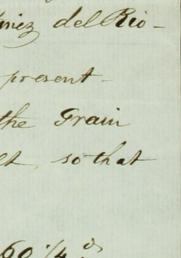 del Rio -
present -
the Grain
so that
60 1/4 d